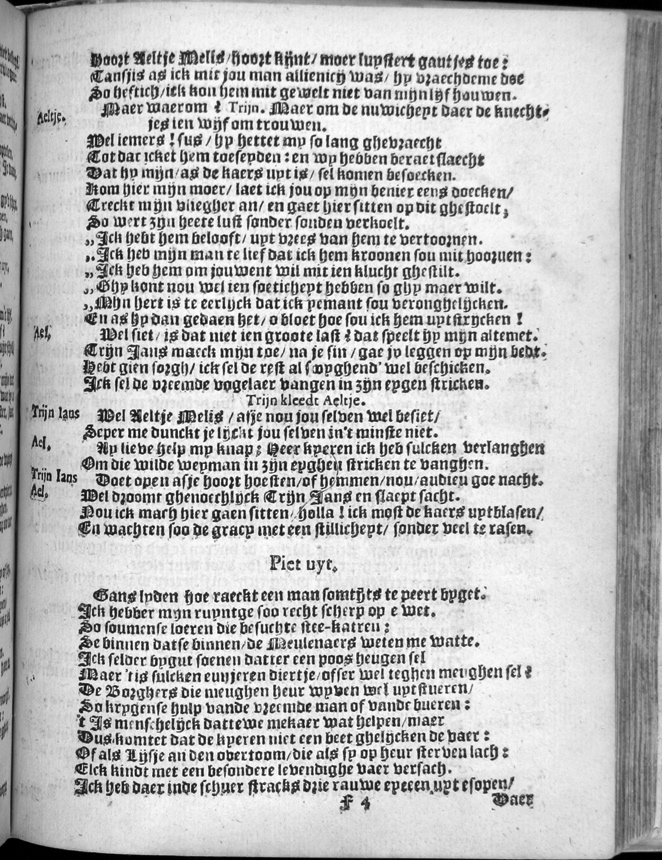 Hoort Aeltje Melis/hoort kijnt/ moer luystert gautjes toe:
Tansjis as ick mit jou man allienicy was/ hy vraechdeme doe
So heftich/ick kon hem mit gewelt niet van mijn lijf houwen.
Aeltje. Maer waerom? Trijn. Maer om de nuwicheyt daer de knecht
jes ien wijf om trouwen.
Wel iemers! sus/ hy hettet my so lang ghevraecht
Tot dat icket hem toeseyden: en wy hebben beraetslaecht
Dat hy mijn/as de kaers uyt is/ sel komen besoecken.
Kom hier mijn moer/ laet ick jou op mijn benier eens doecken/
Treckt mijn vliegher an/ en gaet hier sitten op dit ghestoelt;
So wert zijn heete lust sonder sonden verkoelt.
„Ick hebt hem belooft/ uyt vrees van hem te vertoornen.
„Ick heb mijn man te lief dat ick hem kroonen sou mit hooruen:
„Ick heb hem om jouwent wil mit ien klucht ghestilt.
„Ghy kont nou wel ien soeticheyt hebben so ghy maer wilt.
„Mijn hert is te eerlijck dat ick yemant sou veronghelijcken.
En as hy dan gedaen het/ o bloet hoe sou ick hem uytstrijcken!
Ael. Wel siet/ is dat niet ien groote last? dat speelt hy mijn altemet.
Trijn Jans maeck mijn toe/ na je sin/ gae jy leggen op mijn bedt.
Hebt gien sorgh/ ick sel de rest al swyghend' wel beschicken.
Ick sel de vreemde vogelaer vangen in zijn eygen stricken.
Trijn kleedt Aeltje.
Trijn Ians Wel Aeltje Melis/ asje nou jou selven wel besiet/
Seper me dunckt je lijckt jou selven in't minste niet.
Ael. Ay lieve help my knap; Heer kyeren ick heb sulcken verlanghen
Om die wilde weyman in zijn eygheu stricken te vanghen.
Trijn Ians Doet open asje hoort hoesten/of hemmen/nou/audieu goe nacht.
Ael. Wel droomt ghenoechlijck Trijn Jans en slaept sacht.
Nou ick mach hier gaen sitten/ holla! ick most de kaers uytblasen/
En wachten soo de gracy met een stillicheyt/ sonder veel te rasen.
Piet uyt.
Gans lyden hoe raeckt een man somtijts te peert byget.
Ick hebber mijn ruyntge soo recht scherp op e wet.
So soumense loeren die besuchte stee-katren:
Se binnen datse binnen/de Meulenaers weten me watte.
Ick selder bygut soenen datter een poos heugen sel
Maer 'tis sulcken eunjeren diertje/offer wel teghen meughen sel?
De Borghers die meughen heur wyven wel uytstueren/
So krygense hulp vande vreemde man of vande bueren:
't Is menschelijck dattewe mekaer wat helpen/maer
Dus komtet dat de kyeren niet een beet ghelijcken de vaer:
Of als Lijsje an den overtoom/die als sy op heur sterven lach:
Elck kindt met een besondere levendighe vaer versach.
Ick heb daer inde schuer stracks drie rauwe eyeren uyt esopen/
F 4 Daer